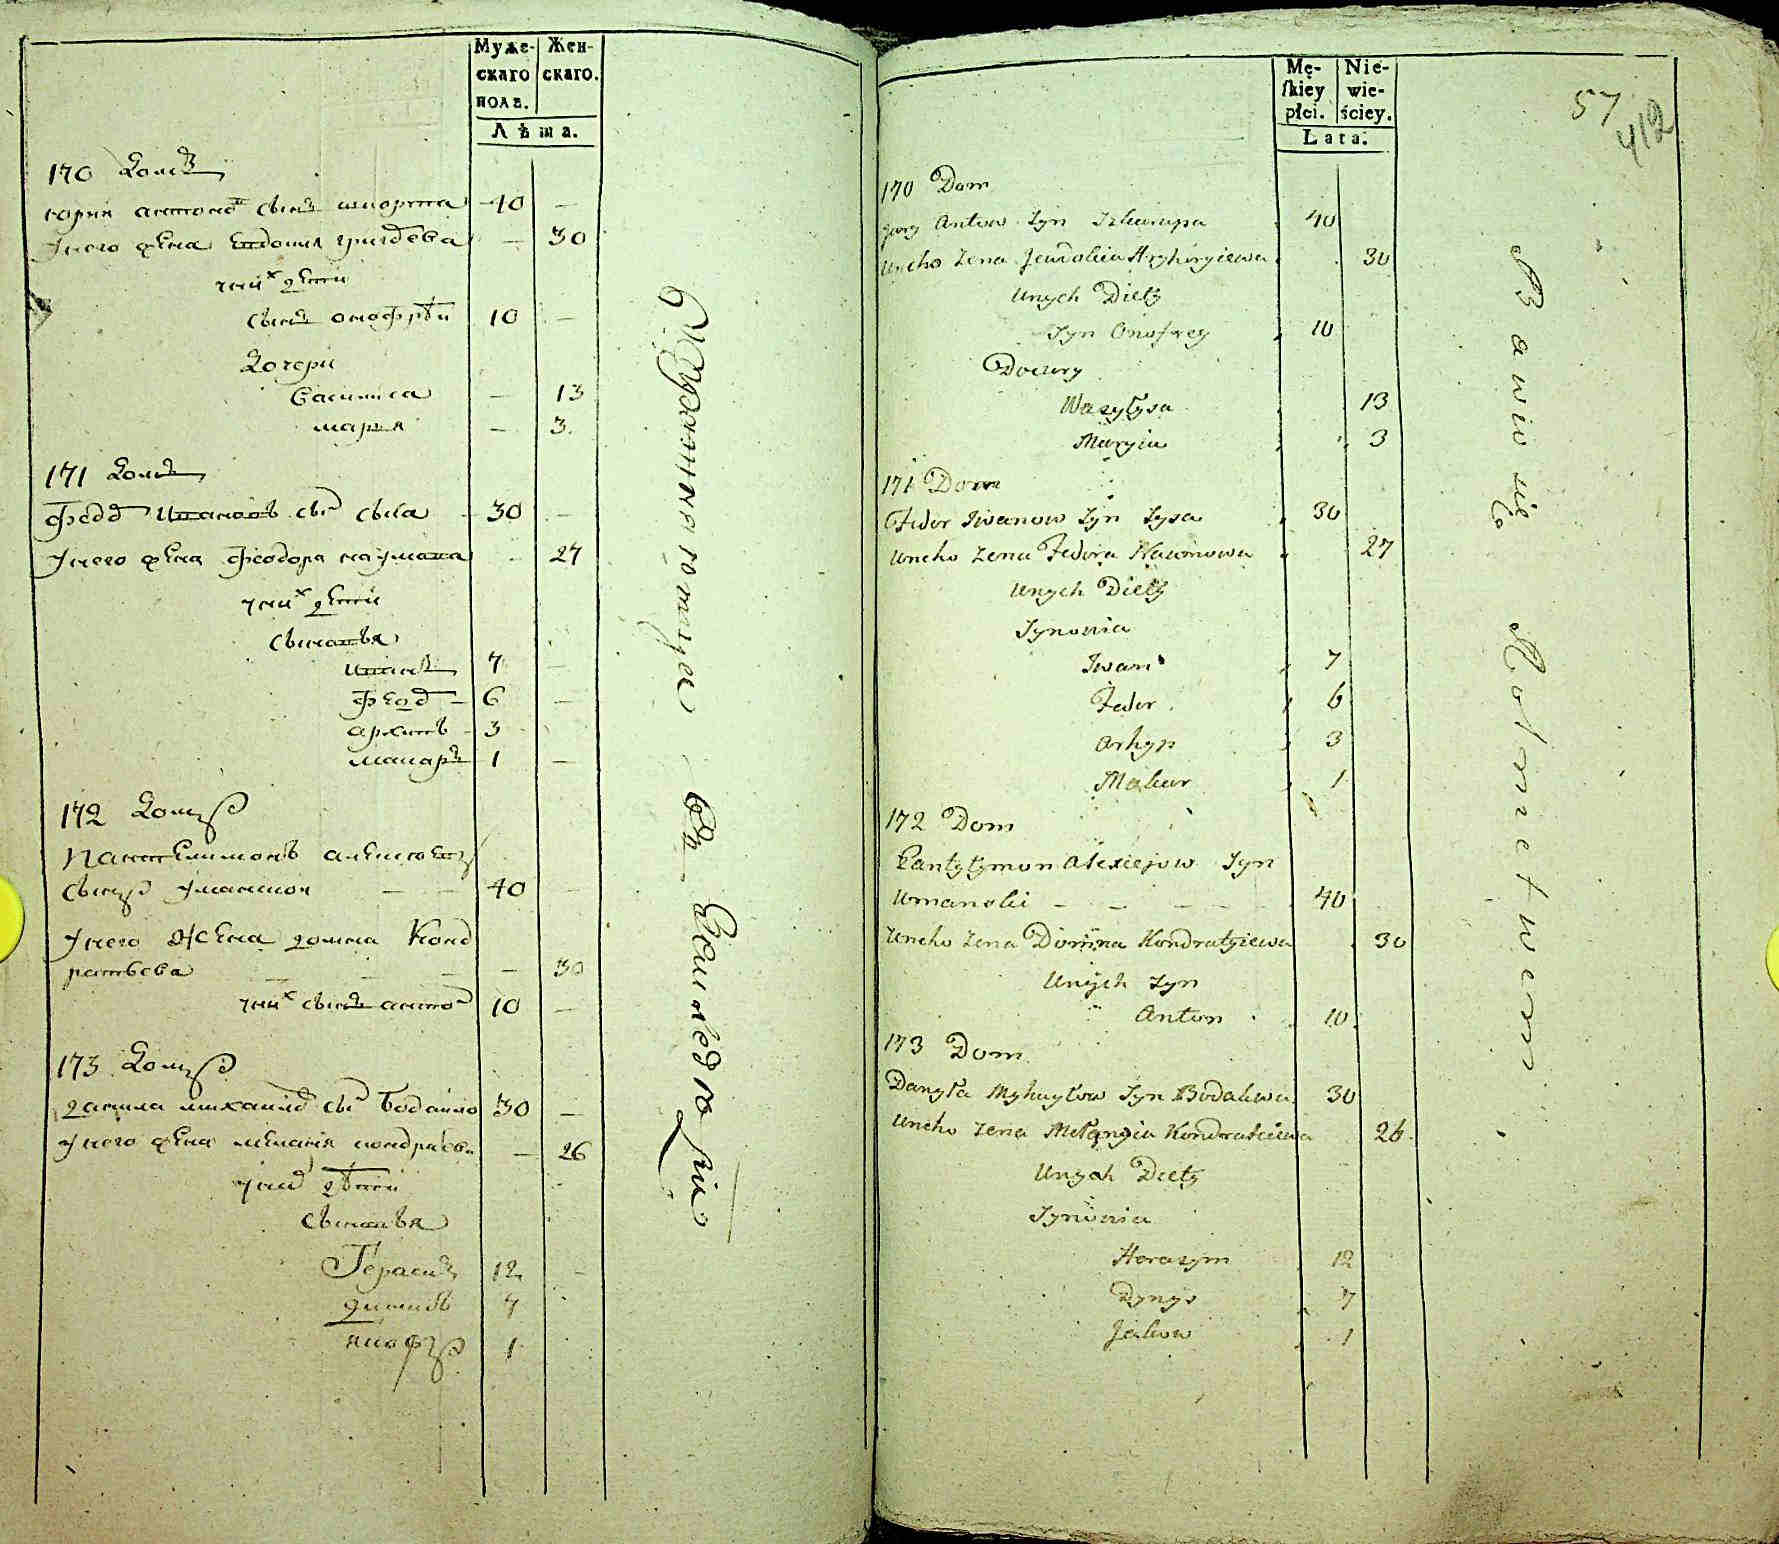 Муже-
скаго
полѣ.
Жен-
скаго.
Лѣта.
170 Домъ
Юрки антоно сынъ шкорупа 40 —
Унего жена Евдокия григорева — 30
уних дети
сынъ онофрѣй 10 —
Дочери
Василиса — 13
марья — 3
171 Домъ
Федор Ивановъ сын сыса 30 —
Унего жена феодора наумова — 27
уних дети
сыновья
иванъ 7 —
Феодор — 6 —
архипъ 3
макаръ 1 —
172 Домъ
Пантелимонъ алексеевъ
сынъ уманской — — 40 —
Унего Жена домна Конд
ратьева — — — — 30
уних сынъ антон 10 —
173 Домъ
данила михаило сын Бодайко 30 —
Унего жена мелания кондратева — 26
уних дѣти
сыновья
Герасим 12 —
дионисъ 7
яковъ 1
Упражняются въ Земледелии
Mę-
ſkiey
płci.
Nie-
wie-
ściey.
Lata.
57
412
170 Dom
Jury Antow Syn Szkurupa 40
Uneho Zena Jewdokia Hryhoryiewa 30
Unych Diety
Syn Onofrey 10
Doczery
Wasyłysa 13
Maryia 3
171 Dom
Fedor Iwanow Syn Sysa 30
Uneho Zena Fedora Naumowa 27
Unych Diety
Synowia
Iwan 7
Fedor 6
Arhyp 3
Makar 1
172 Dom
Pantyłymon Alexiejow Syn
Umanski — — — — — 40
Uneho Zena Domna Kondratyiewa 30
Unych Syn
Anton 10
173 Dom
Danyła Myhayłow Syn Bodakwa 30
Uneho Zena Mełanyia Kondratiewa 26
Unych Diety
Synowia
Herasym 12
Dynys 7
Jakow 1
Bawio się Rolnictwem